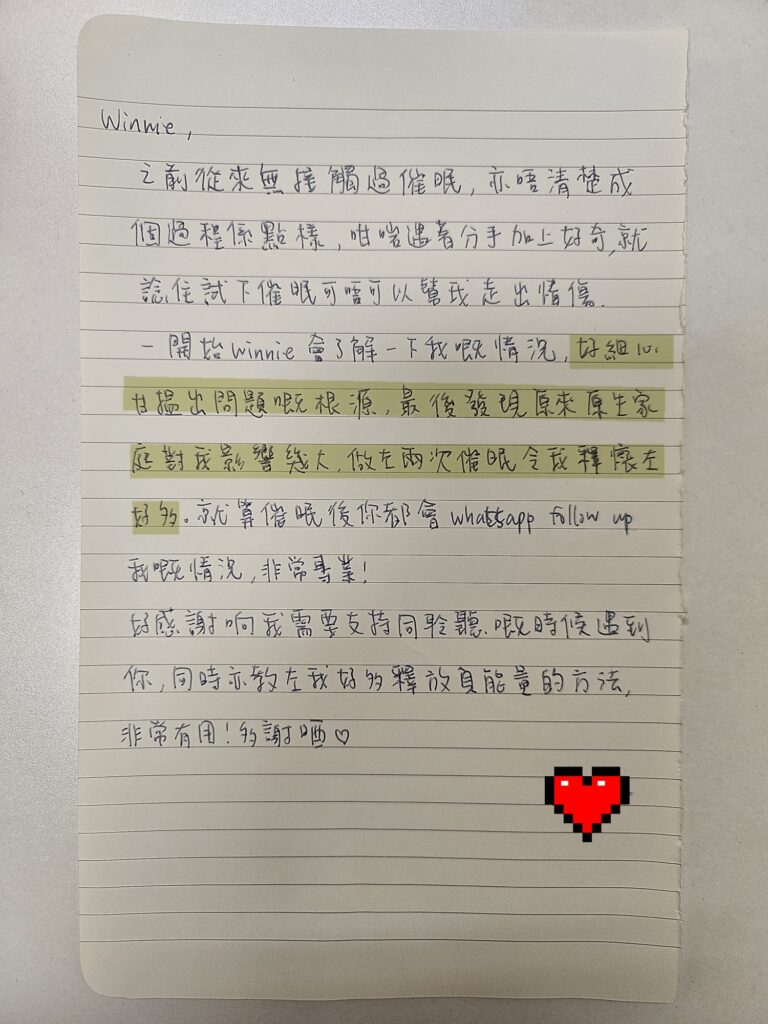 Winnie,
之前從來無接觸過催眠,亦唔清楚成
個過程係點樣,咁啱遇著分手加上好奇,就
諗住試下催眠可唔可以幫我走出情傷.
一開始winnie會了解一下我嘅情況,好細心
甘搵出問題嘅根源,最後發現原來原生家
庭對我影響幾大,做左兩次催眠令我釋懷左
好多。就算催眠後你都會whatsapp follow up
我嘅情況,非常專業!
好感謝响我需要支持同聆聽嘅時候遇到
你,同時亦教左我好多釋放負能量的方法,
非常有用!多謝晒♡